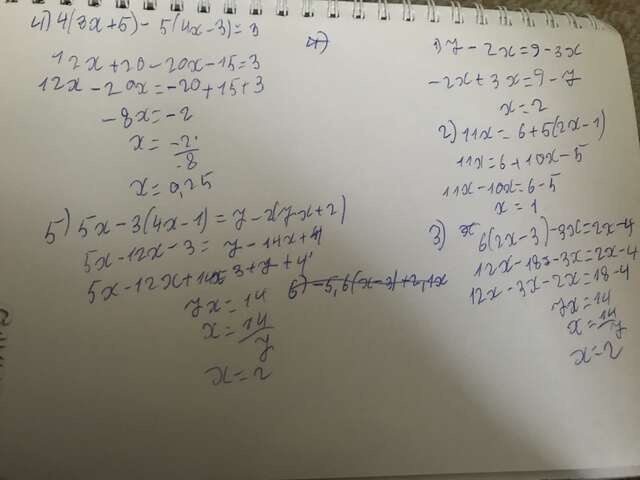 4) 4(3x+5)-5(4x-3)=3
12x+20-20x-15=3
12x-20x=-20+15+3
-8x=-2
x=-2/-8
x=0,25
5) 5x-3(4x-1)=7-2(7x+2)
5x-12x-3=7-14x+4
5x-12x+14x=3+7+4
7x=14
x=14/7
x=2
6) -5,6(x-3)+2,1x
1) 7-2x=9-3x
-2x+3x=9-7
x=2
2) 11x=6+5(2x-1)
11x=6+10x-5
11x-10x=6-5
x=1
3) 6(2x-3)-3x=2x-4
12x-18-3x=2x-4
12x-3x-2x=18-4
7x=14
x=14/7
x=2